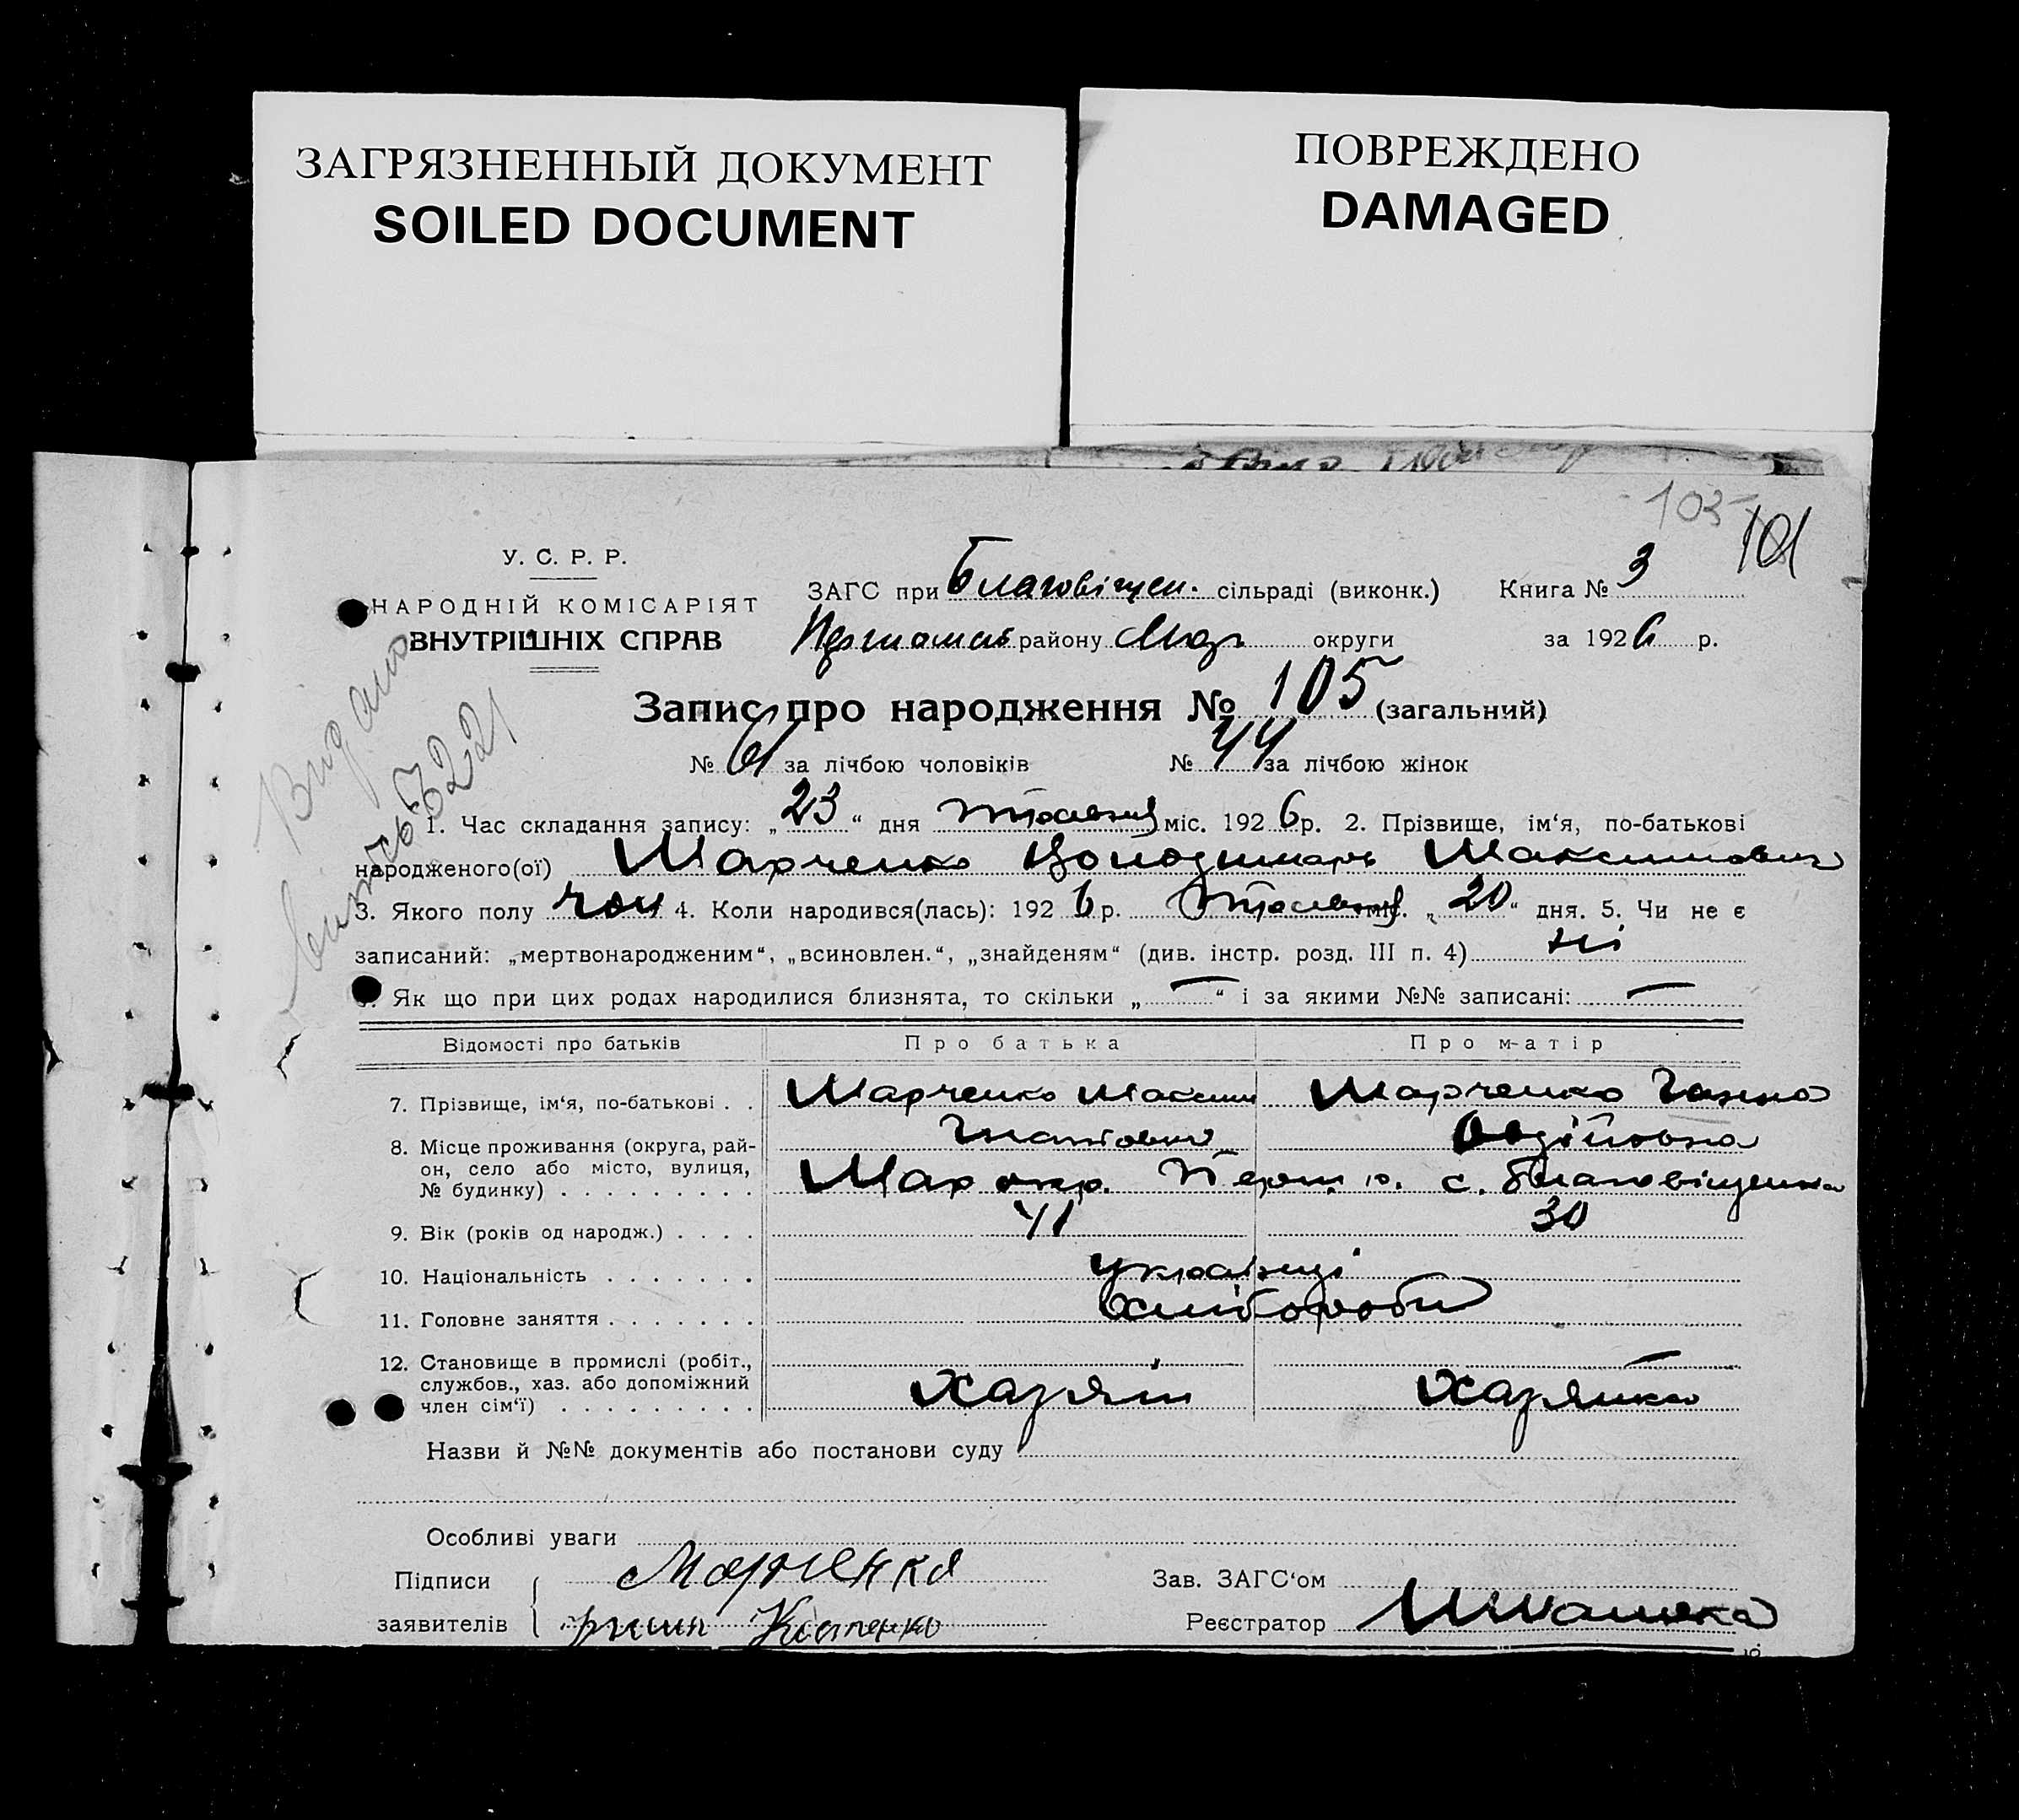 ЗАГРЯЗНЕННЫЙ ДОКУМЕНТ
SOILED DOCUMENT
ПОВРЕЖДЕНО
DAMAGED
103
101
У. С. Р. Р.
НАРОДНІЙ КОМІСАРІЯТ
ВНУТРІШНІХ СПРАВ
ЗАГС при Благовіщен. сільраді (виконк.) Книга № 3
району Мар округи за 1926 р.
Запис про народження № 105 (загальний)
№ 61 за лічбою чоловіків № 44 за лічбою жінок
Видано
1. Час складання запису: „23“ дня травня міс. 1926 р. 2. Прізвище, ім‘я, по-батькові
народженого(ої) Марченко Володимирь Максимович
3. Якого полу чол 4. Коли народився(лась): 1926 р. травня міс. „20“ дня. 5. Чи не є
записаний: „мертвонародженим“, „всиновлен.“, „знайденям“ (див. інстр. розд. III п. 4) ні
Як що при цих родах народилися близнята, то скільки „—“ і за якими №№ записані: —
Відомості про батьків Про батька Про матір
7. Прізвище, ім‘я, по-батькові . . Марченко Максим Марченко Ганна
Гнатович Овдіївна
8. Місце проживання (округа, рай-
он, село або місто, вулиця,
№ будинку) . . . . . . . . . Мар окр. Перш. р. с. Благовіщенка
9. Вік (років од народж.) . . . . 41 30
10. Національність . . . . . . . українці
11. Головне заняття . . . . . . . хлібороби
12. Становище в промислі (робіт.,
службов., хаз. або допоміжний
член сім‘ї) . . . . . . . . . хазяін хазяйка
Назви й №№ документів або постанови суду
Особливі уваги
Підписи Марченко Зав. ЗАГС‘ом
заявителів Реєстратор